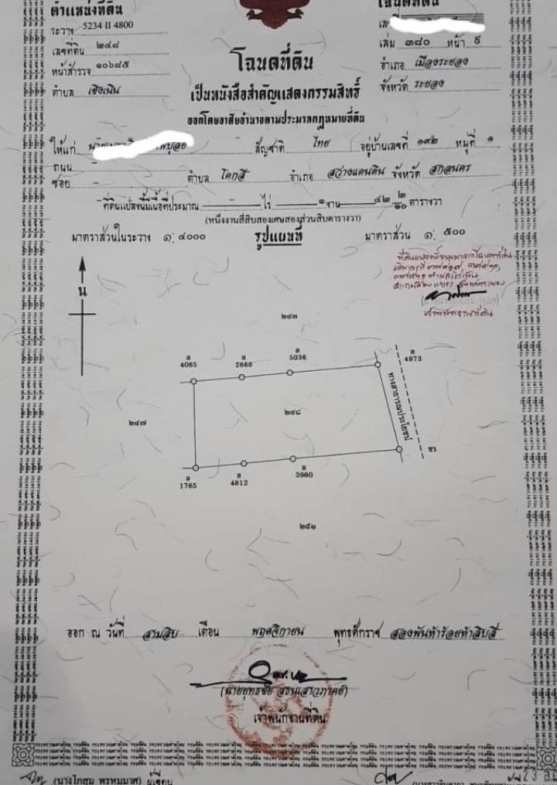 ตำแหน่งที่ดิน
ระวาง 5234 II 4800
เลขที่ดิน ๒๔๘
หน้าสำรวจ ๑๐๖๘๕
ตำบล เชิงเนิน
โฉนดที่ดิน
เล่ม ๓๘๐ หน้า
อำเภอ เมืองระยอง
จังหวัด ระยอง
โฉนดที่ดิน
เป็นหนังสือสำคัญแสดงกรรมสิทธิ์
ออกโดยอาศัยอำนาจตามประมวลกฎหมายที่ดิน
ให้แก่ สัญชาติ ไทย อยู่บ้านเลขที่ ๑๙๒ หมู่ที่ ๑
ถนน
ซอย - ตำบล โคกสี อำเภอ สว่างแดนดิน จังหวัด สกลนคร
ที่ดินแปลงนี้มีเนื้อที่ประมาณ - ไร่ ๑ งาน ๔๒ ๒/๑๐ ตารางวา
(หนึ่งงานสี่สิบสองเศษสองส่วนสิบตารางวา)
มาตราส่วนในระวาง ๑:๔๐๐๐ รูปแผนที่ มาตราส่วน ๑:๕๐๐
น
๒๔๓
4065 2668 5036 4973
๒๔๗ ๒๔๘ ทางสาธารณประโยชน์
1765 4812 3980
๒๕๑
ออก ณ วันที่ สามสิบ เดือน พฤศจิกายน พุทธศักราช สองพันห้าร้อยห้าสิบสี่
เจ้าพนักงานที่ดิน